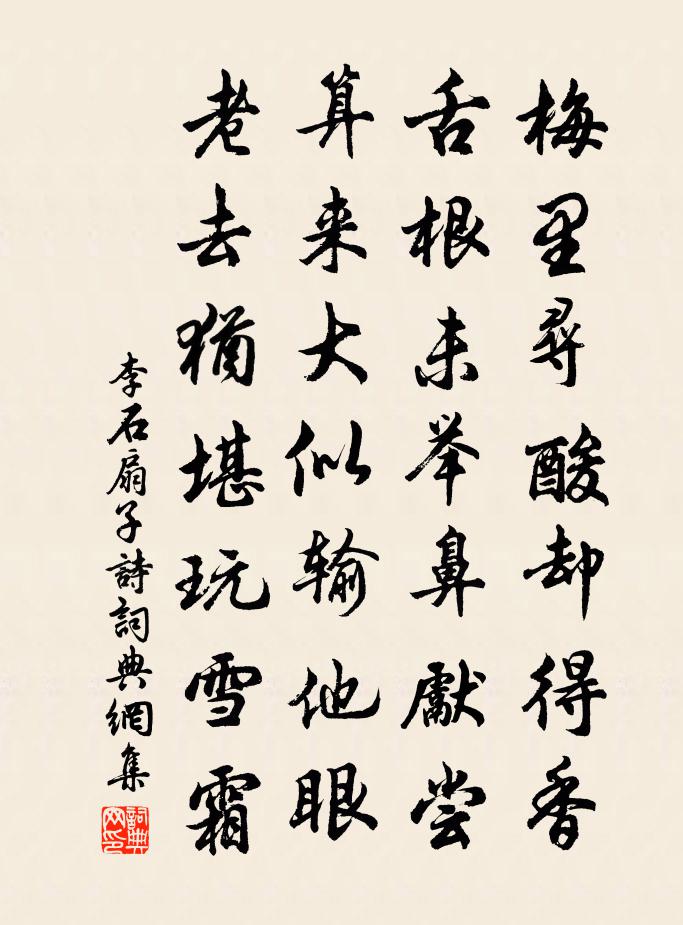 梅里尋酸却得香
舌根未举鼻獻尝
算来大似输他眼
老去猶堪玩雪霜
李石扇子詩詞典網集
詞典
网印